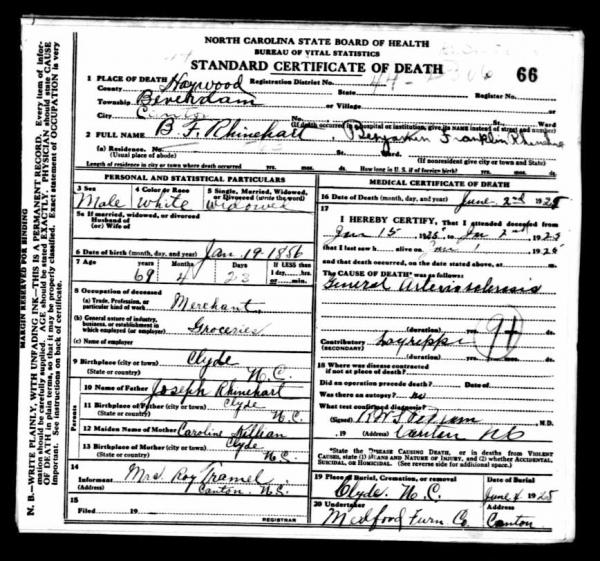 NORTH CAROLINA STATE BOARD OF HEALTH
BUREAU OF VITAL STATISTICS
STANDARD CERTIFICATE OF DEATH
66
MARGIN RESERVED FOR BINDING
N. B.—WRITE PLAINLY, WITH UNFADING INK—THIS IS A PERMANENT RECORD. Every item of information should be carefully supplied. AGE should be stated EXACTLY. PHYSICIANS should state CAUSE OF DEATH in plain terms, so that it may be properly classified. Exact statement of OCCUPATION is very important. See instructions on back of certificate.
1 PLACE OF DEATH
County Haywood Registration District No. 44- State Register No.
Township Beverdam or Village
City Ward
(If death occurred in a hospital or institution, give its NAME instead of street and number)
2 FULL NAME B. F. Rhinehart, Benjamin Franklin Rhinehart
(a) Residence. No. Ward
(Usual place of abode) (If nonresident give city or town and State)
Length of residence in city or town where death occurred yrs. mos. ds. How long in U. S. if of foreign birth? yrs. mos. ds.
PERSONAL AND STATISTICAL PARTICULARS
3 Sex 4 Color or Race 5 Single, Married, Widowed, or Divorced (write the word)
Male White Widowed
5a If married, widowed, or divorced
Husband of
(or) Wife of
6 Date of birth (month, day, and year) Jan 19 1856
7 Age Years Months Days If LESS than
69 4 23 1 day, hrs.
or min.
8 Occupation of deceased
(a) Trade, Profession, or particular kind of work Merchant
(b) General nature of industry, business, or establishment in which employed (or employer) Groceries
(c) Name of employer
9 Birthplace (city or town) Clyde
(State or country) N.C.
Parents
10 Name of Father Joseph Rhinehart
11 Birthplace of Father (city or town) Clyde
(State or country) N.C.
12 Maiden Name of Mother Caroline Killian
13 Birthplace of Mother (city or town) Clyde
(State or country) N.C.
14
Informant Mrs. Roy Tramel
(Address) Canton, N.C.
15
Filed , 19
REGISTRAR
MEDICAL CERTIFICATE OF DEATH
16 Date of Death (month, day, and year) June 2nd 1925
17
I HEREBY CERTIFY, That I attended deceased from
Jan 15 1925 to Jun 2 1925
that I last saw h alive on 1925
and that death occurred, on the date stated above, at m.
The CAUSE OF DEATH* was as follows
General Arteriosclerosis
(duration) yrs. mos. ds.
Contributory Lagrippe
(SECONDARY)
(duration) yrs. mos. ds.
18 Where was disease contracted
if not at place of death?
Did an operation precede death? Date of
Was there an autopsy? no
What test confirmed diagnosis?
(Signed) M. D.
, 19 (Address) Canton NC
*State the DISEASE CAUSING DEATH, or in deaths from VIOLENT CAUSES, state (1) MEANS AND NATURE OF INJURY, and (2) whether ACCIDENTAL, SUICIDAL, or HOMICIDAL. (See reverse side for additional space.)
19 Place of Burial, Cremation, or removal Date of Burial
Clyde, N.C. June 4 1925
20 Undertaker Address
Medford Furn Co. Canton